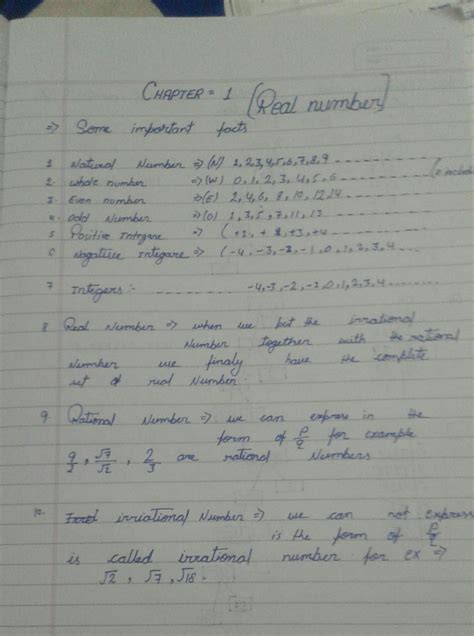 CHAPTER = 1 [Real number]
=> Some important facts
1 Natural Number => (N) 1,2,3,4,5,6,7,8,9
2. whole number => (W) 0,1,2,3,4,5,6
3. Even number => (E) 2,4,6,8,10,12,14
4. odd Number => (O) 1,3,5,7,11,13
5 Positive Integare => (+1,+2,+3,+4
6 Nagative Integare => (-4,-3,-2,-1,0,1,2,3,4
7 Integers:- -4,-3,-2,-1,0,1,2,3,4
8 Real Number => when we but the irrational
Number together with the rational
Number we finaly have the complete
set of real Number.
9. Rational Number => we can express in the
form of p/q for example
9/2, √7/√2, 2/3 are rational Numbers
10. irriational Number => we can not express
is the form of p/q
is called irrational number for ex =>
√2, √7, √18.